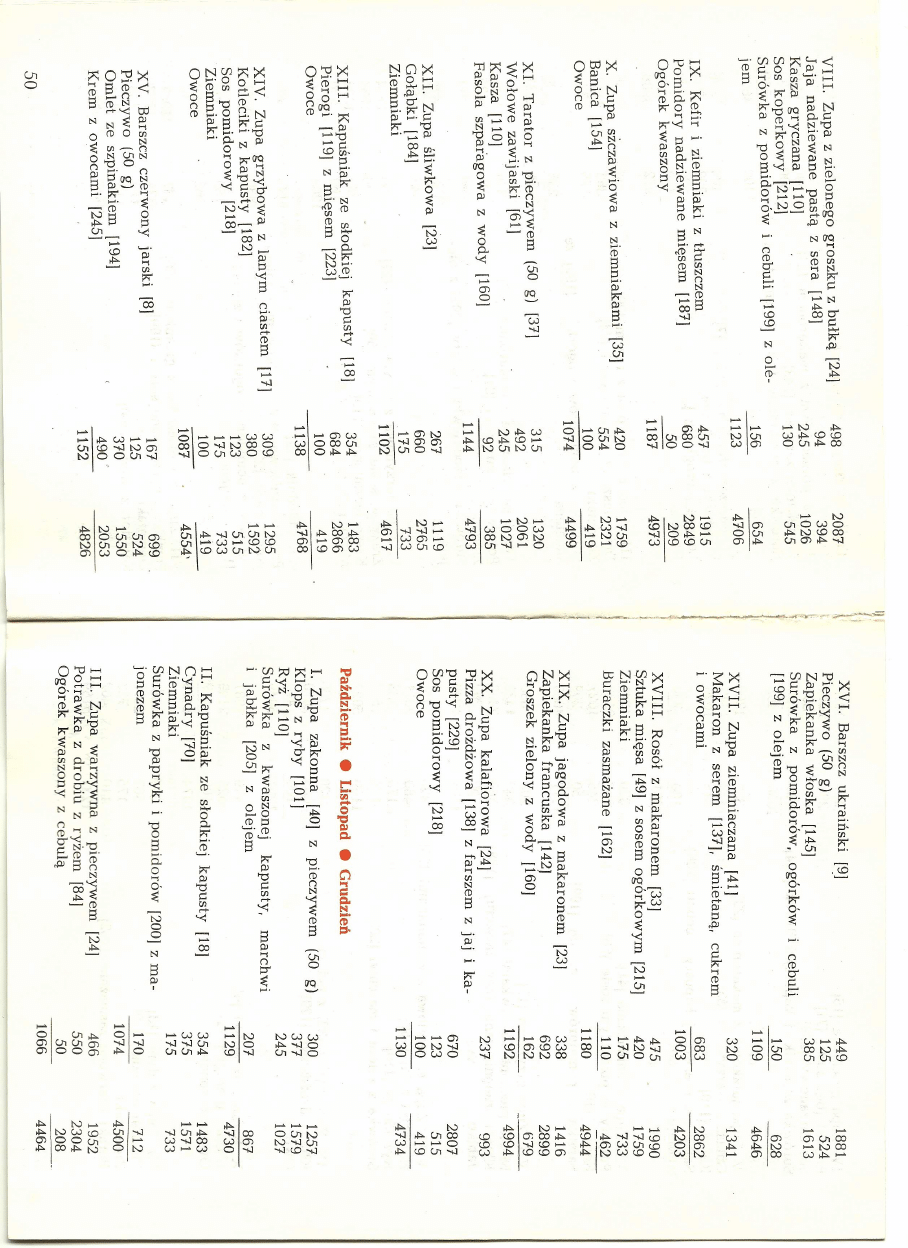 VIII. Zupa z zielonego groszku z bułką [24] 498 2087
Jaja nadziewane pastą z sera [148] 94 394
Kasza gryczana [110] 245 1026
Sos koperkowy [212] 130 545
Surówka z pomidorów i cebuli [199] z ole-
jem 156 654
1123 4706
IX. Kefir i ziemniaki z tłuszczem 457 1915
Pomidory nadziewane mięsem [187] 680 2849
Ogórek kwaszony 50 209
1187 4973
X. Zupa szczawiowa z ziemniakami [35] 420 1759
Banica [154] 554 2321
Owoce 100 419
1074 4499
XI. Tarator z pieczywem (50 g) [37] 315 1320
Wołowe zawijaski [61] 492 2061
Kasza [110] 245 1027
Fasola szparagowa z wody [160] 92 385
1144 4793
XII. Zupa śliwkowa [23] 267 1119
Gołąbki [184] 660 2765
Ziemniaki 175 733
1102 4617
XIII. Kapuśniak ze słodkiej kapusty [18] 354 1483
Pierogi [119] z mięsem [223] 684 2866
Owoce 100 419
1138 4768
XIV. Zupa grzybowa z lanym ciastem [17] 309 1295
Kotleciki z kapusty [182] 380 1592
Sos pomidorowy [218] 123 515
Ziemniaki 175 733
Owoce 100 419
1087 4554
XV. Barszcz czerwony jarski [8] 167 699
Pieczywo (50 g) 125 524
Omlet ze szpinakiem [194] 370 1550
Krem z owocami [245] 490 2053
1152 4826
50
XVI. Barszcz ukraiński [9] 449 1881
Pieczywo (50 g) 125 524
Zapiekanka włoska [145] 385 1613
Surówka z pomidorów, ogórków i cebuli
[199] z olejem 150 628
1109 4646
XVII. Zupa ziemniaczana [41] 320 1341
Makaron z serem [137], śmietaną, cukrem
i owocami 683 2862
1003 4203
XVIII. Rosół z makaronem [33] 475 1990
Sztuka mięsa [49] z sosem ogórkowym [215] 420 1759
Ziemniaki 175 733
Buraczki zasmażane [162] 110 462
1180 4944
XIX. Zupa jagodowa z makaronem [23] 338 1416
Zapiekanka francuska [142] 692 2899
Groszek zielony z wody [160] 162 679
1192 4994
XX. Zupa kalafiorowa [24] 237 993
Pizza drożdżowa [138] z farszem z jaj i ka-
pusty [229] 670 2807
Sos pomidorowy [218] 123 515
Owoce 100 419
1130 4734
Październik ● Listopad ● Grudzień
I. Zupa zakonna [40] z pieczywem (50 g) 300 1257
Klops z ryby [101] 377 1579
Ryż [110] 245 1027
Surówka z kwaszonej kapusty, marchwi
i jabłka [205] z olejem 207 867
1129 4730
II. Kapuśniak ze słodkiej kapusty [18] 354 1483
Cynadry [70] 375 1571
Ziemniaki 175 733
Surówka z papryki i pomidorów [200] z ma-
jonezem 170 712
1074 4500
III. Zupa warzywna z pieczywem [24] 466 1952
Potrawka z drobiu z ryżem [84] 550 2304
Ogórek kwaszony z cebulą 50 208
1066 4464